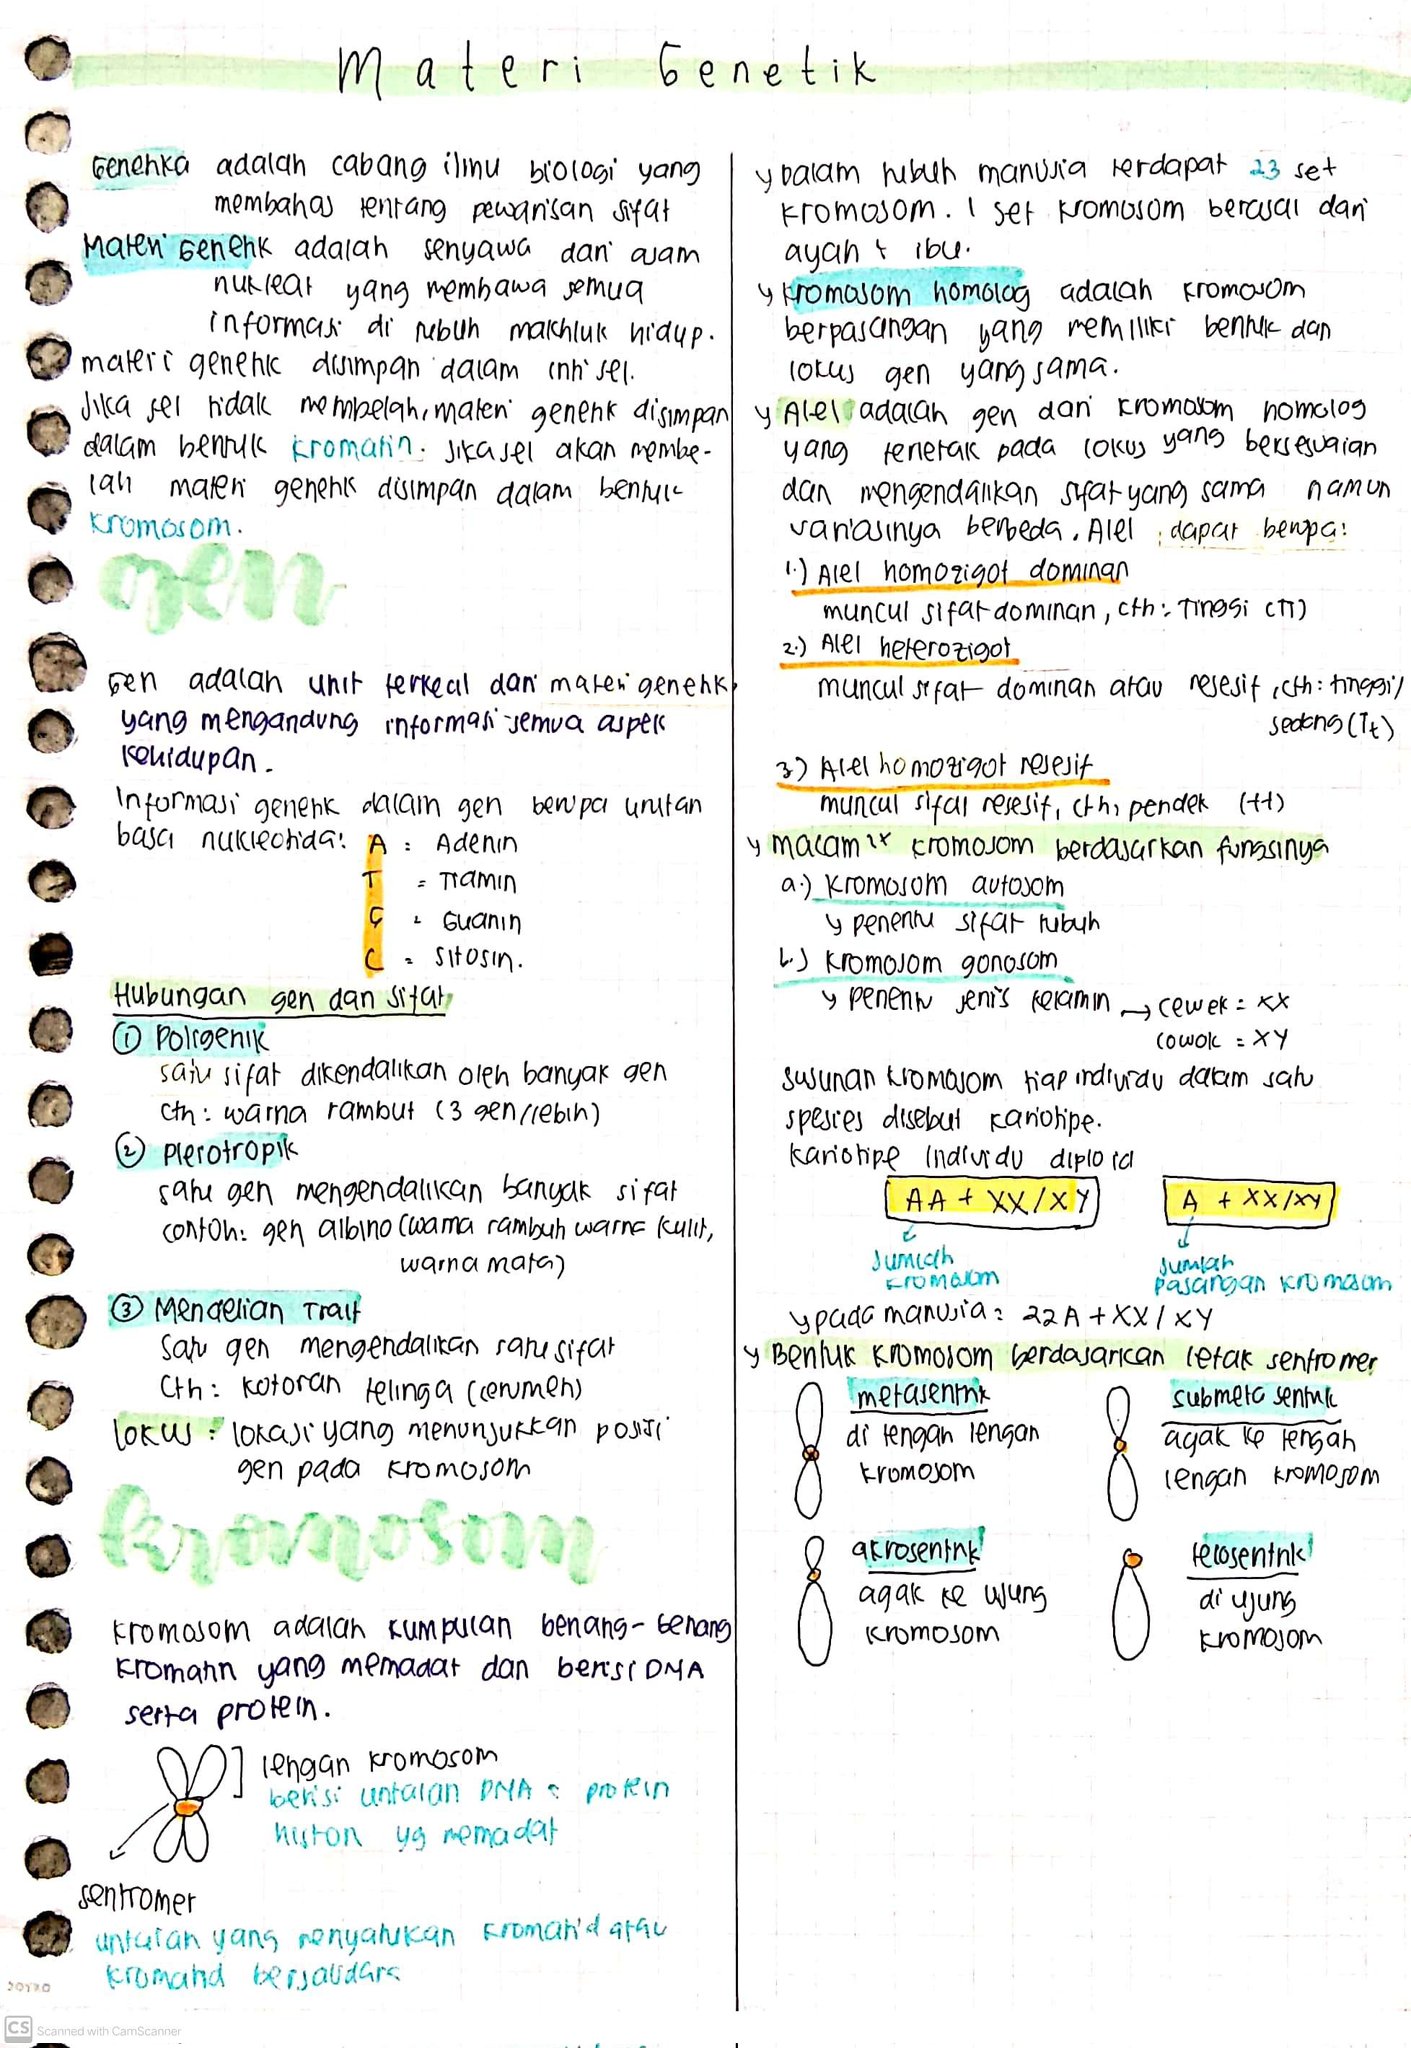 Materi Genetik
Genetika adalah cabang ilmu biologi yang
membahas tentang pewarisan sifat
Materi Genetik adalah senyawa dari asam
nukleat yang membawa semua
informasi di tubuh makhluk hidup.
materi genetik disimpan dalam inti sel.
Jika sel tidak membelah, materi genetik disimpan
dalam bentuk kromatin. Jika sel akan membe-
lah materi genetik disimpan dalam bentuk
kromosom.
gen
Gen adalah unit terkecil dari materi genetik,
yang mengandung informasi semua aspek
kehidupan.
Informasi genetik dalam gen berupa urutan
basa nukleotida: A : Adenin
T = Tiamin
G = Guanin
C = Sitosin.
Hubungan gen dan sifat
① Poligenik
satu sifat dikendalikan oleh banyak gen
cth: warna rambut (3 gen/lebih)
② Pleiotropik
satu gen mengendalikan banyak sifat
contoh: gen albino (warna rambut, warna kulit,
warna mata)
③ Mendelian Trait
Satu gen mengendalikan satu sifat
Cth: kotoran telinga (cerumen)
lokus: lokasi yang menunjukkan posisi
gen pada kromosom
kromosom
kromosom adalah kumpulan benang-benang
kromatin yang memadat dan berisi DNA
serta protein.
lengan kromosom
berisi untaian DNA & protein
histon yg memadat
sentromer
untaian yang menyatukan kromatid atau
kromatid bersaudara
JOYKO
CS Scanned with CamScanner
Dalam tubuh manusia terdapat 23 set
kromosom. 1 set kromosom berasal dari
ayah & ibu.
kromosom homolog adalah kromosom
berpasangan yang memiliki bentuk dan
lokus gen yang sama.
Alel adalah gen dari kromosom homolog
yang terletak pada lokus yang bersesuaian
dan mengendalikan sifat yang sama namun
variasinya berbeda. Alel dapat berupa:
1.) Alel homozigot dominan
muncul sifat dominan, cth: Tinggi (TT)
2.) Alel heterozigot
muncul sifat dominan atau resesif, cth: tinggi/
sedang (Tt)
3.) Alel homozigot resesif
muncul sifat resesif, cth, pendek (tt)
macam2x kromosom berdasarkan fungsinya
a.) kromosom autosom
penentu sifat tubuh
b.) kromosom gonosom
penentu jenis kelamin → cewek = XX
cowok = XY
susunan kromosom tiap individu dalam satu
spesies disebut kariotipe.
kariotipe individu diploid
AA + XX/XY
A + XX/XY
Jumlah
kromosom
Jumlah
pasangan kromosom
pada manusia: 22A + XX/XY
Bentuk kromosom berdasarkan letak sentromer
metasentrik
di tengah lengan
kromosom
submetasentrik
agak ke tengah
lengan kromosom
akrosentrik
agak ke ujung
kromosom
telosentrik
di ujung
kromosom